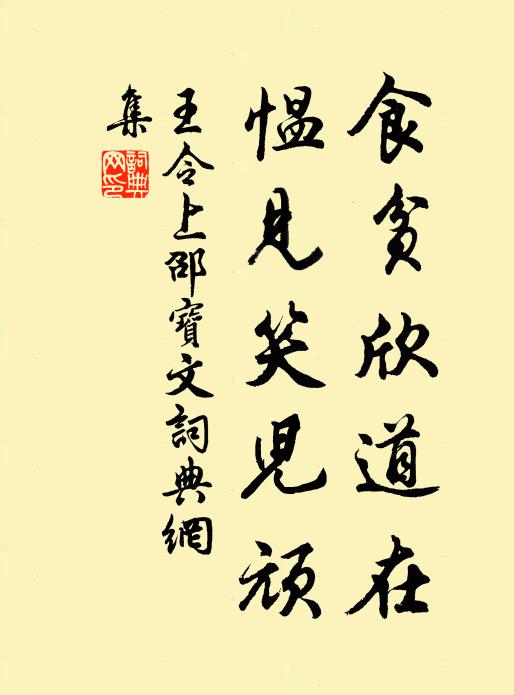 食貧欣道在
慍見笑兒頑
王令上邵寶文詞典網
集
詞典网印